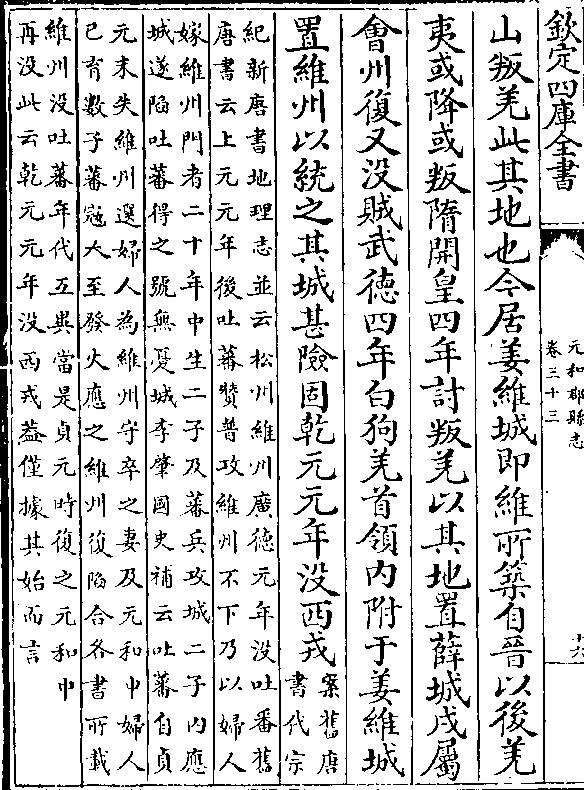 欽定四庫全書
元和郡縣志
卷三十三
十六
山叛羌此其地也今居姜維城即維所築自晉以後羌
夷或降或叛隋開皇四年討叛羌以其地置薛城戍屬
會州復又没賊武德四年白狗羌首領内附于姜維城
置維州以統之其城甚險固乾元元年没西戎
案舊唐
書代宗
紀新唐書地理志並云松州維州廣德元年没吐番舊
唐書云上元元年後吐蕃贊普攻維州不下乃以婦人
嫁維州門者二十年中生二子及蕃兵攻城二子内應
城遂陷吐蕃得之號無憂城李肇國史補云吐蕃自貞
元末失維州選婦人為維州守卒之妻及元和中婦人
已有數子蕃寇大至發火應之維州復陷合各書所載
維州没吐蕃年代互異當是貞元時復之元和中
再没此云乾元元年没西戎葢僅據其始而言